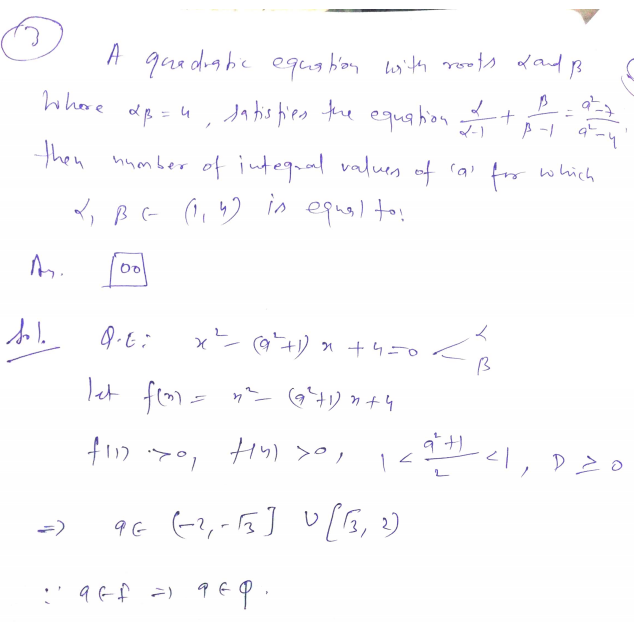 3
A quadratic equation with roots α and β
Where αβ = 4, satisfies the equation α/(α-1) + β/(β-1) = (a²-7)/(a²-4),
then number of integral values of 'a' for which
α, β ∈ (1, 4) is equal to:
An. 00
Sol. Q.E: x² - (a²+1) x + 4 = 0 < α β
let f(x) = x² - (a²+1) x + 4
f(1) > 0, f(4) > 0, 1 < (a²+1)/2 < 1, D ≥ 0
⇒ a ∈ (-2, -√3] ∪ [√3, 2)
∵ a ∈ I ⇒ a ∈ φ.